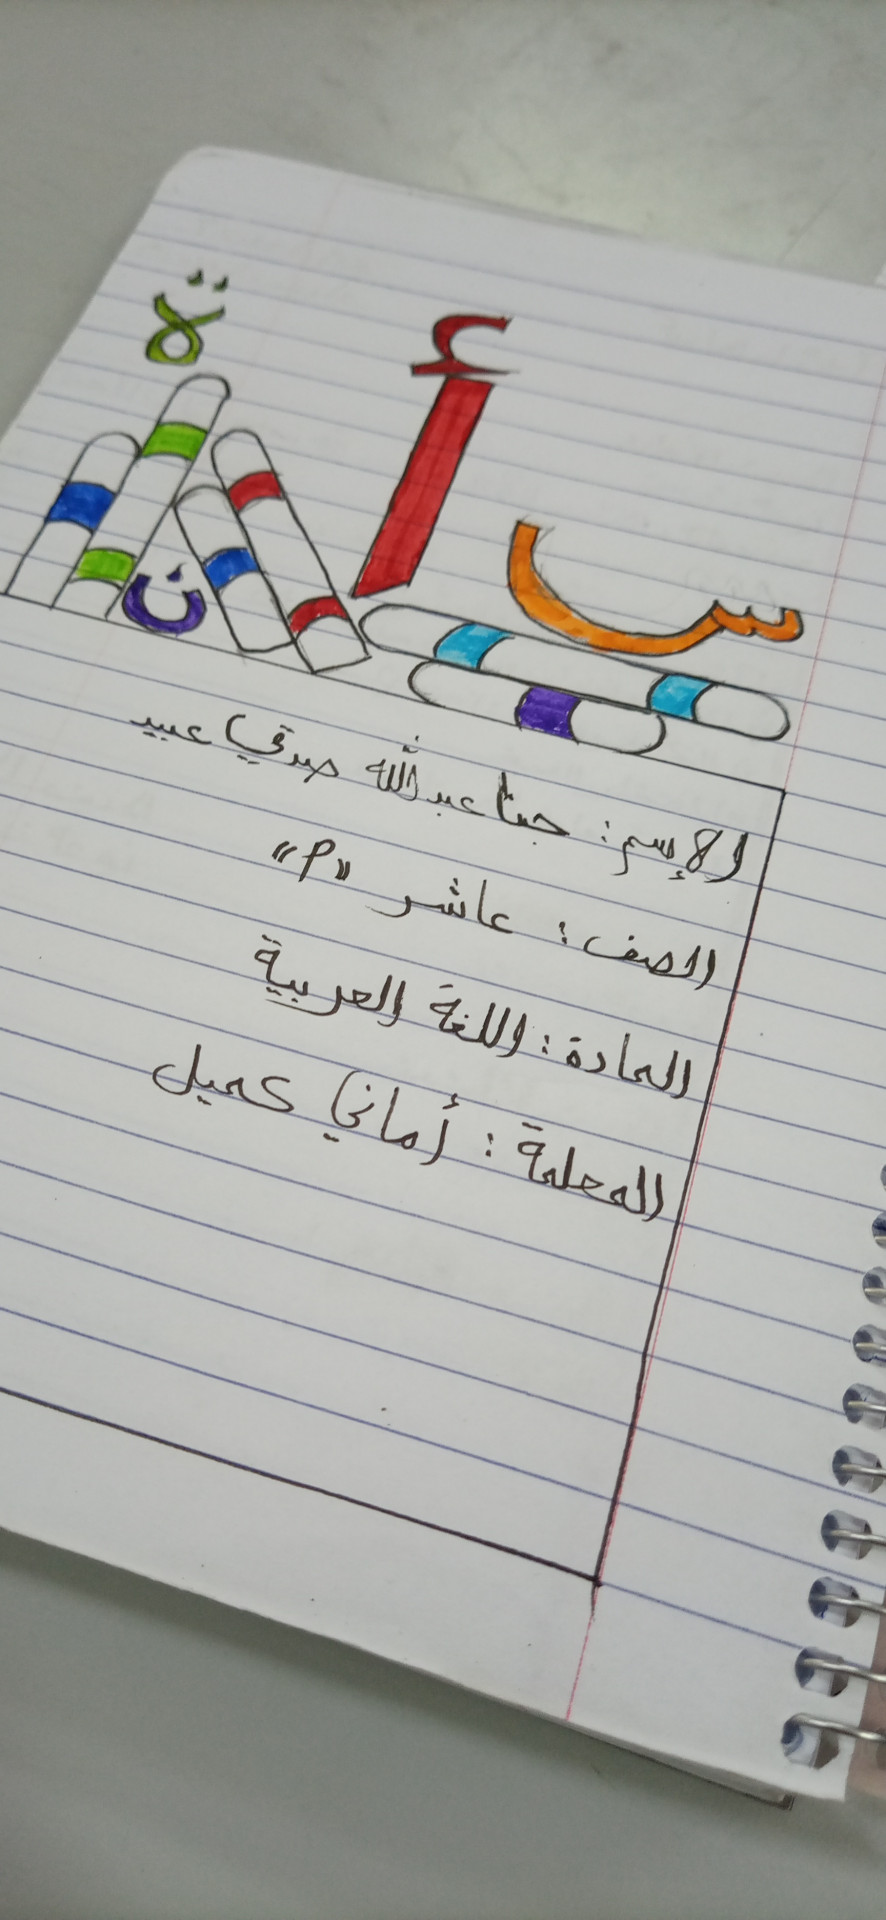 س أ ن ة
الإسم: جنا عبدالله صدقي عبيد
الصف: عاشر "م"
المادة: اللغة العربية
المعلمة: أماني كميل